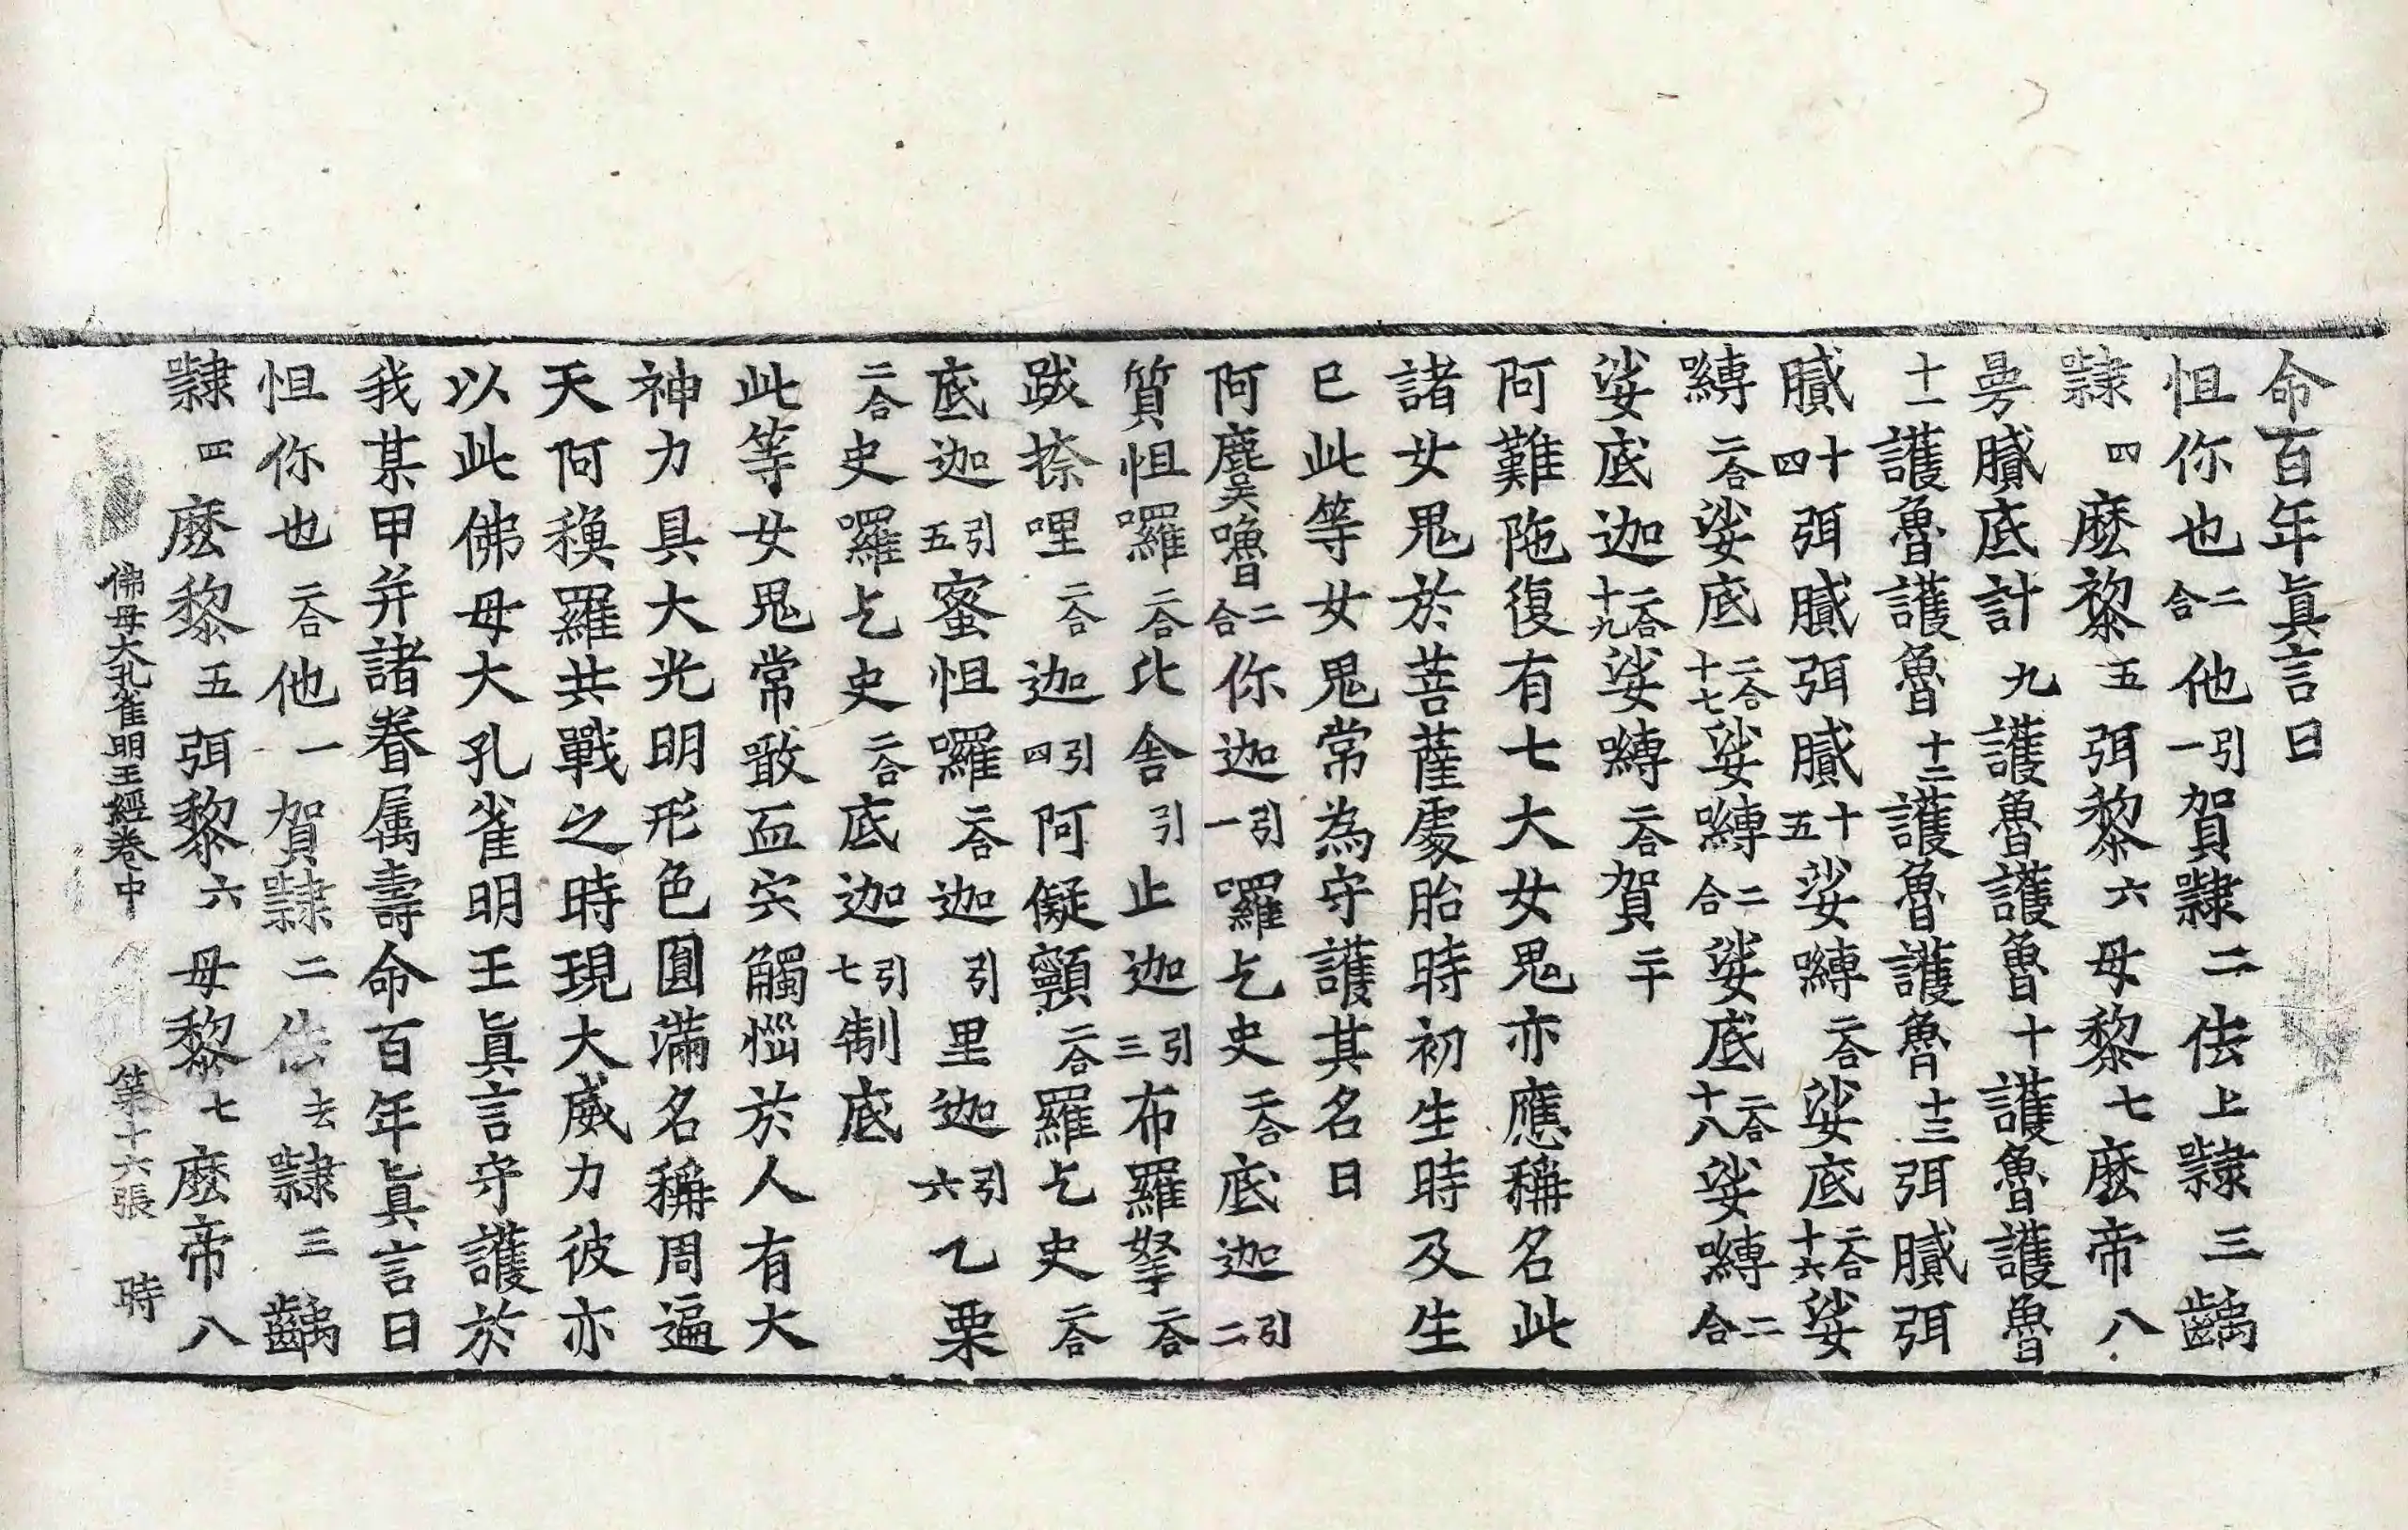 命百年眞言曰
怛你也二合他引一賀隷二佉上隷三齲
隷四麼黎五弭黎六母黎七麼帝八
曼膩底計九護魯護魯十護魯護魯
十一護魯護魯十二護魯護魯十三弭膩弭
膩十四弭膩弭膩十五娑嚩二合娑底二合十六娑
嚩二合娑底二合十七娑嚩二合娑底二合十八娑嚩二合
娑底迦二合十九娑嚩二合賀二十
阿難陁復有七大女鬼亦應稱名此
諸女鬼於菩薩處胎時初生時及生
已此等女鬼常為守護其名曰
阿麌嚕二合你迦引一囉乞史二合底迦引二
質怛囉二合比舍引止迦引三布羅拏二合
跋捺哩二合迦引四阿儗顐二合羅乞史二合
底迦引五蜜怛囉二合迦引里迦引六乙栗
二合史囉乞史二合底迦引七制底
此等女鬼常噉血宍觸惱於人有大
神力具大光明形色圓滿名稱周遍
天阿穆羅共戰之時現大威力彼亦
以此佛母大孔雀明王眞言守護於
我某甲并諸眷属壽命百年眞言曰
怛你也二合他一賀隷二佉去隷三齲
隷四麼黎五弭黎六母黎七麼帝八
佛母大孔雀明王經卷中 第十六張 時